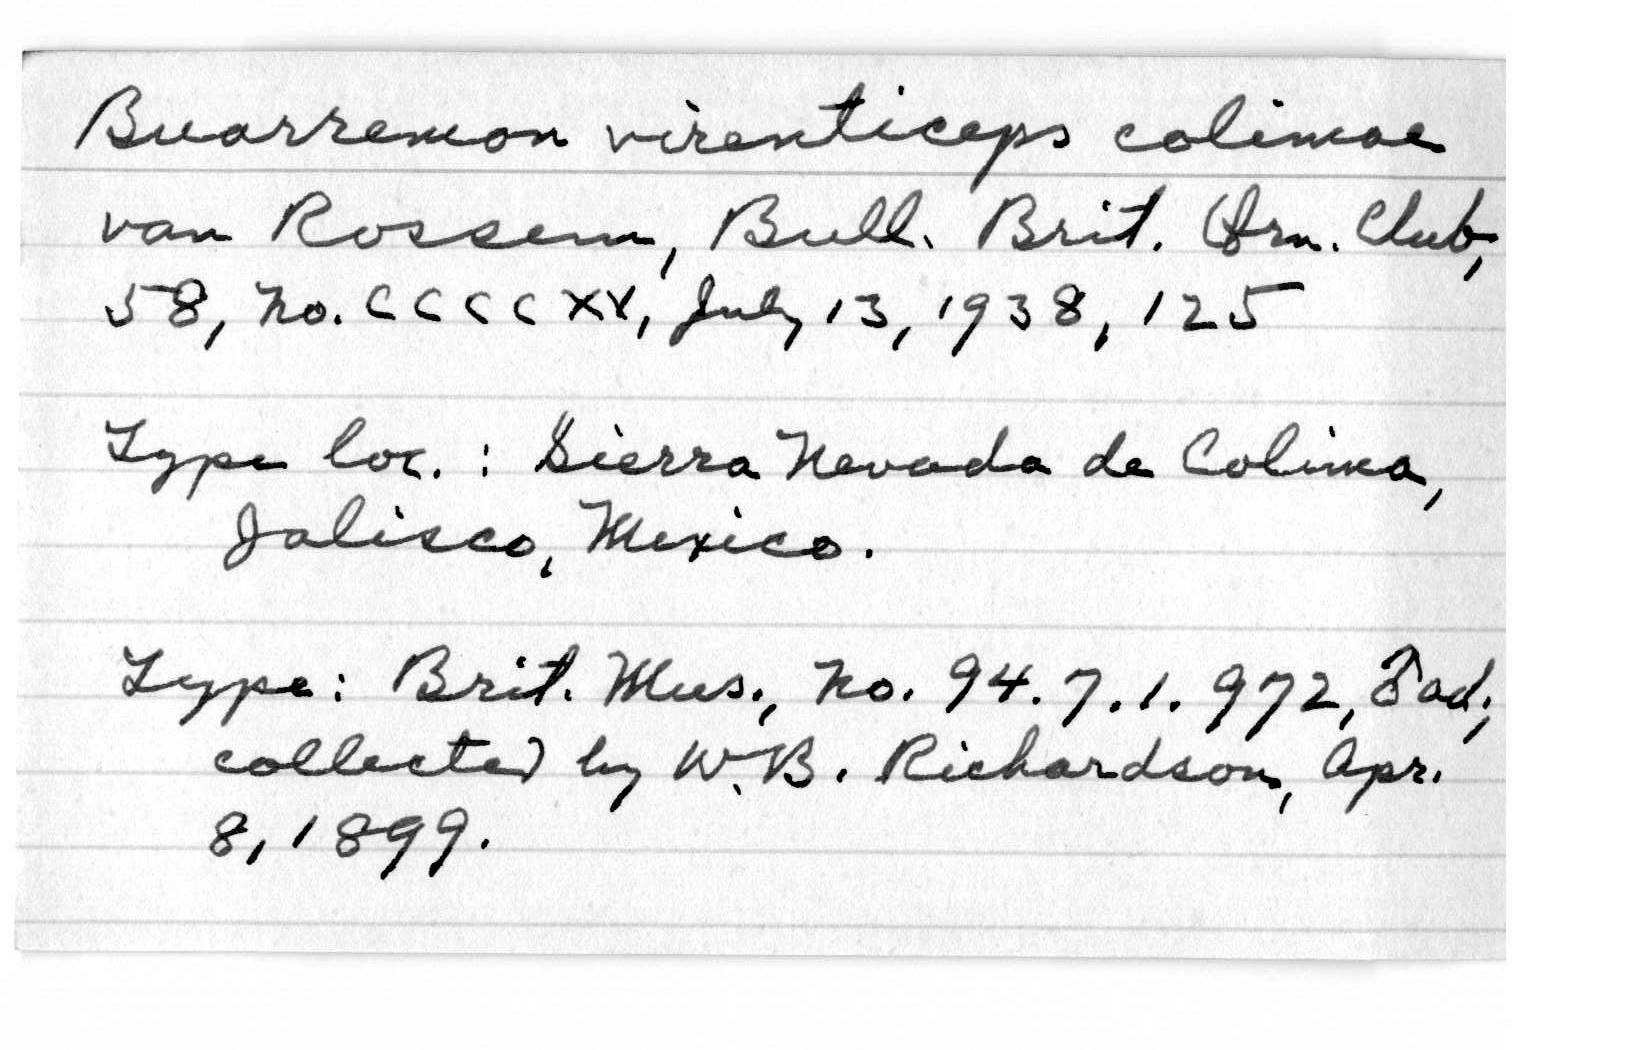 Buarremon virenticeps colimae
van Rossem, Bull. Brit. Orn. Club,
58, no. CCCCXV, July 13, 1938, 125
Type loc. : Sierra Nevada de Colima,
Jalisco, Mexico.
Type: Brit. Mus., no. 94.7.1.972, ♂ ad.,
collected by W.B. Richardson, Apr.
8, 1899.